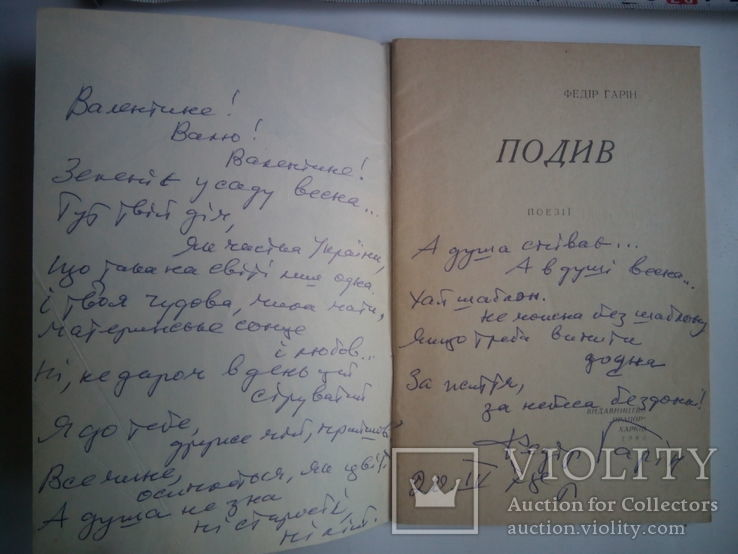 Валентине!
Валю!
Валентине!
Зеленіє у саду весна...
Тут твій дім,
Як частка України,
Що така на світі лиш одна.
І твоя чудова, мила мати,
материнське сонце
і любов...
Ні, не даром в день цей
Я до тебе,
друже мій, прийшов
Все мине,
осиплеться, як цвіт
А душа не зна
ні старості,
ні літ.
ФЕДІР ГАРІН
ПОДИВ
ПОЕЗІЇ
А душа співає...
А в душі весна...
Хай шаблон.
Не можна без шаблону
Якщо треба випити
до дна
За життя,
за небеса бездонні!
ВИДАВНИЦТВО
ПРАПОР
ХАРКІВ
Федір Гарін
20 IV
VIOLITY
Auction for Collectors
auction.violity.com